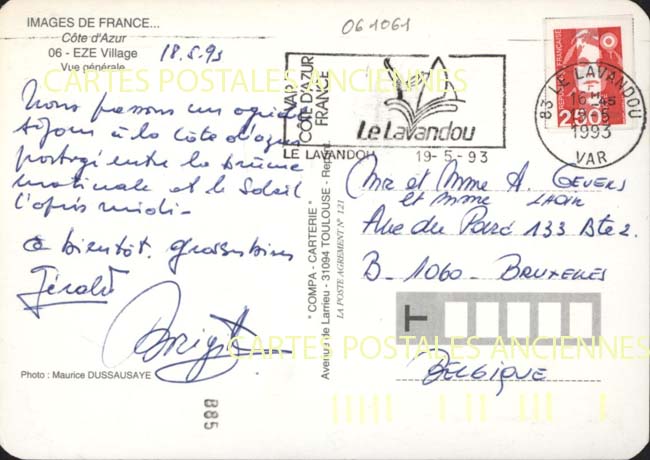 IMAGES DE FRANCE...
Côte d'Azur
06 - EZE Village
Vue générale
18.5.93
061061
VAR
CÔTE D'AZUR
FRANCE
Le Lavandou
LE LAVANDOU 19-5-93
83 LE LAVANDOU
16 H 45
1993
VAR
2,50
CARTES POSTALES ANCIENNES
Nous passons un agréable
séjour à la côte d'azur
partagé entre la brume
matinale et le soleil
l'après midi-
à bientôt. grosses bises
Gérald
Brigitte
Mr et Mme A. GEVERS
et Mme
Rue du Parc 133 Bte 2.
B-1060- BRUXELLES
BELGIQUE
T
" COMPA - CARTERIE "
Avenue de Larrieu - 31094 TOULOUSE -
LA POSTE AGREMENT N° 121
CARTES POSTALES ANCIENNES
Photo : Maurice DUSSAUSAYE
B85